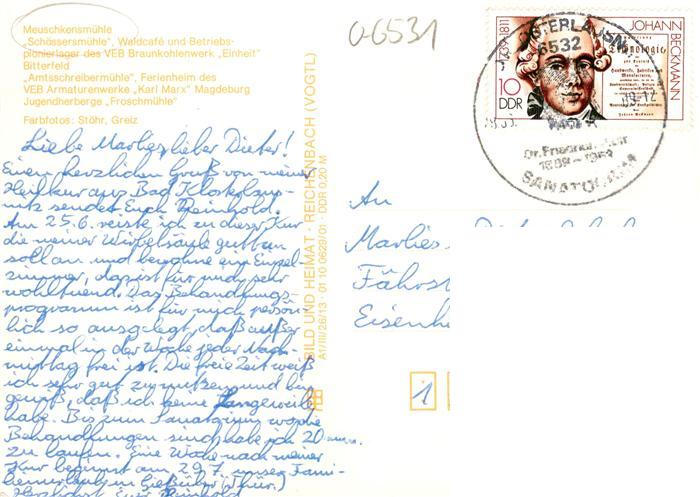 Meuschkensmühle
„Schössersmühle", Waldcafé und Betriebs-
pionierlager des VEB Braunkohlenwerk „Einheit"
Bitterfeld
„Amtsschreibermühle", Ferienheim des
VEB Armaturenwerke „Karl Marx" Magdeburg
Jugendherberge „Froschmühle"
Farbfotos: Stöhr, Greiz
06531
Liebe Marlies, lieber Dieter!
Einen herzlichen Gruß von meiner
Heilkur aus Bad Klosterlaus-
nitz sendet Euch Reinhold.
Am 25.6. reiste ich zu dieser Kur
die meiner Wirbelsäule gut tun
soll an und bewohne ein Einzel-
zimmer, das ist für mich sehr
wohltuend. Das Behandlungs-
programm ist für mich persön-
lich so ausgelegt, daß außer
einmal in der Woche jeder Nach-
mittag frei ist. Die freie Zeit weiß
ich sehr gut zu nutzen und bin
gewiß, daß ich keine Langeweile
habe. Bis zum
Behandlungen sind habe ich 20 min.
zu laufen. Eine Woche nach meiner
Kur beginnt am 29.7. unser Fami-
lienurlaub in Gießübel (Thür.)
Herzlichst Euer Reinhold
BILD UND HEIMAT · REICHENBACH (VOGTL)
A1/III/26/13 · 01 10 0629/01 · DDR 0,20 M
JOHANN BECKMANN
1739-1811
Technologie
10
DDR
6532
Dr. Friedrich
SANATORIUM
An
Marlies
Fährst
Eisenh
1